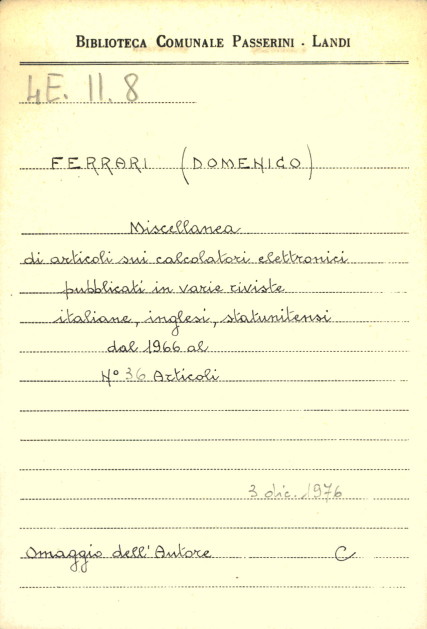 BIBLIOTECA COMUNALE PASSERINI - LANDI
4E. II. 8
FERRARI (DOMENICO)
Miscellanea
di articoli sui calcolatori elettronici
pubblicati in varie riviste
italiane, inglesi, statunitensi
dal 1966 al
N° 36 Articoli
3 dic. 1976
Omaggio dell'Autore C